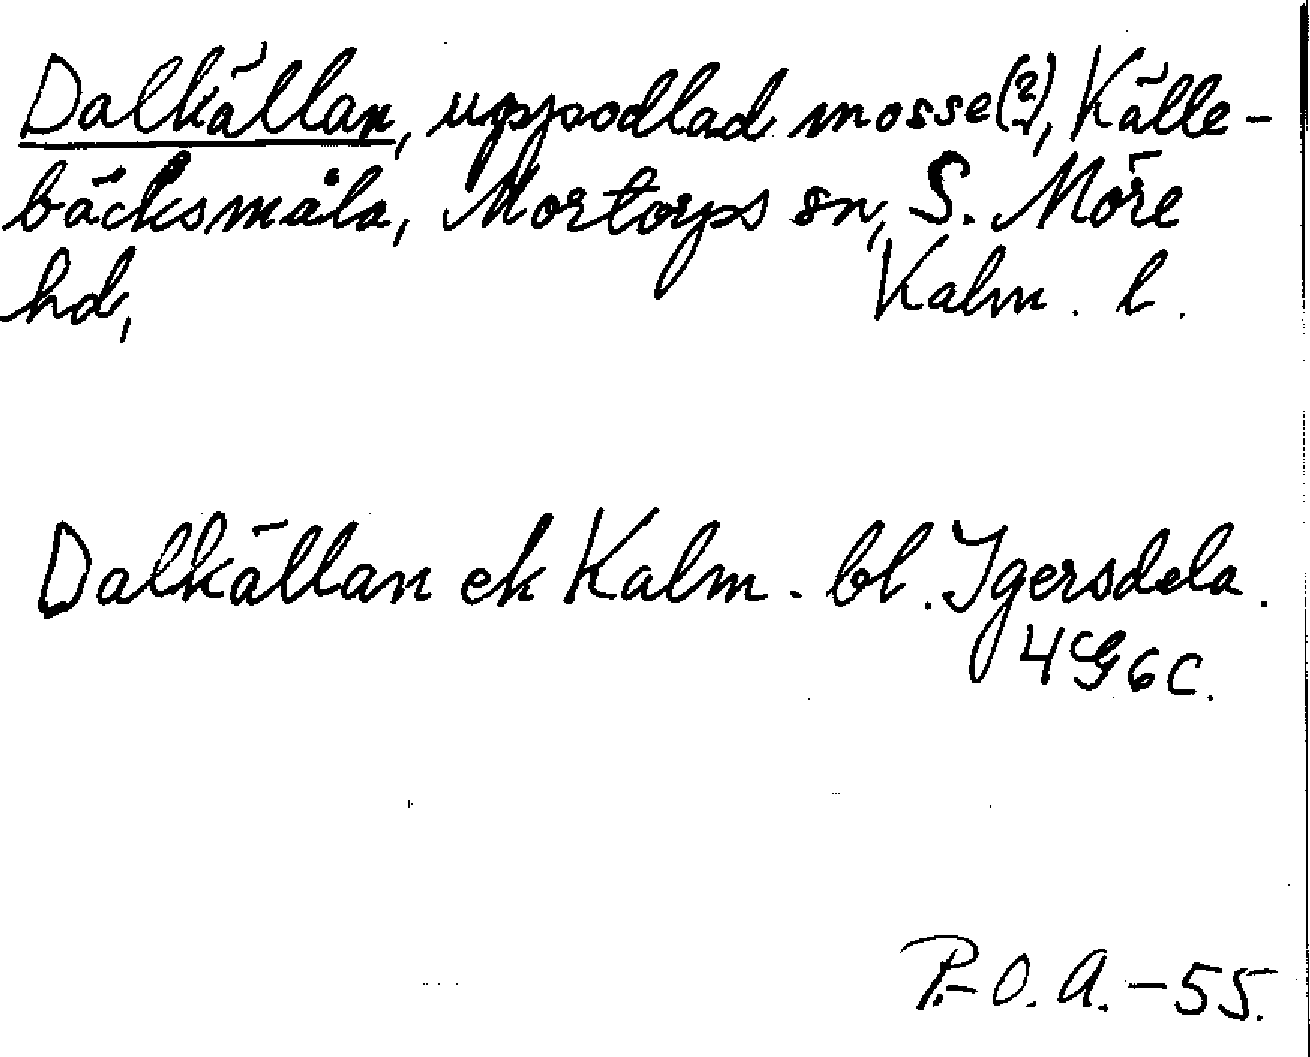 Dalkällan, uppodlad mosse(?), Källe-
bäcksmåla, Mortorps sn, S. Möre
hd, Kalm. l.
Dalkällan ek Kalm. bl. Igersdela.
4G6c.
P.-O. A. -55.